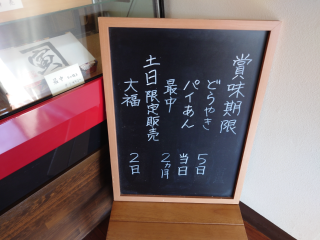 賞味期限
どらやき 5日
パイあん 当日
最中 2ヵ月
土日限定販売
大福 2日